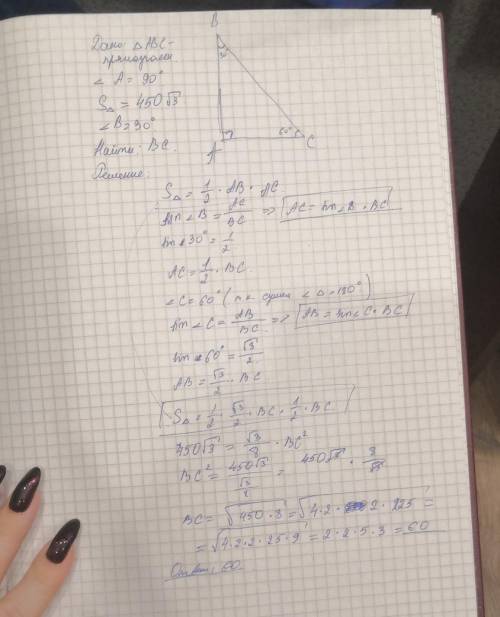 Дано: △ABC -
прямоугольн.
∠A = 90°
S△ = 450√3
∠B = 30°
Найти: BC.
Решение
B
A
60°
C
S△ = 1/2 · AB · AC.
sin∠B = AC/BC => AC = sin∠B · BC
sin 30° = 1/2
AC = 1/2 · BC.
∠C = 60° (т.к сумма ∠△ = 180°)
sin∠C = AB/BC => AB = sin∠C · BC
sin 60° = √3/2
AB = √3/2 · BC
S△ = 1/2 · √3/2 · BC · 1/2 · BC
450√3 = √3/8 · BC²
BC² = 450√3/(√3/8) = 450√3 · 8/√3
BC = √450·8 = √4·2·2·225 =
= √4·2·2·25·9 = 2·2·5·3 = 60
Ответ: 60.